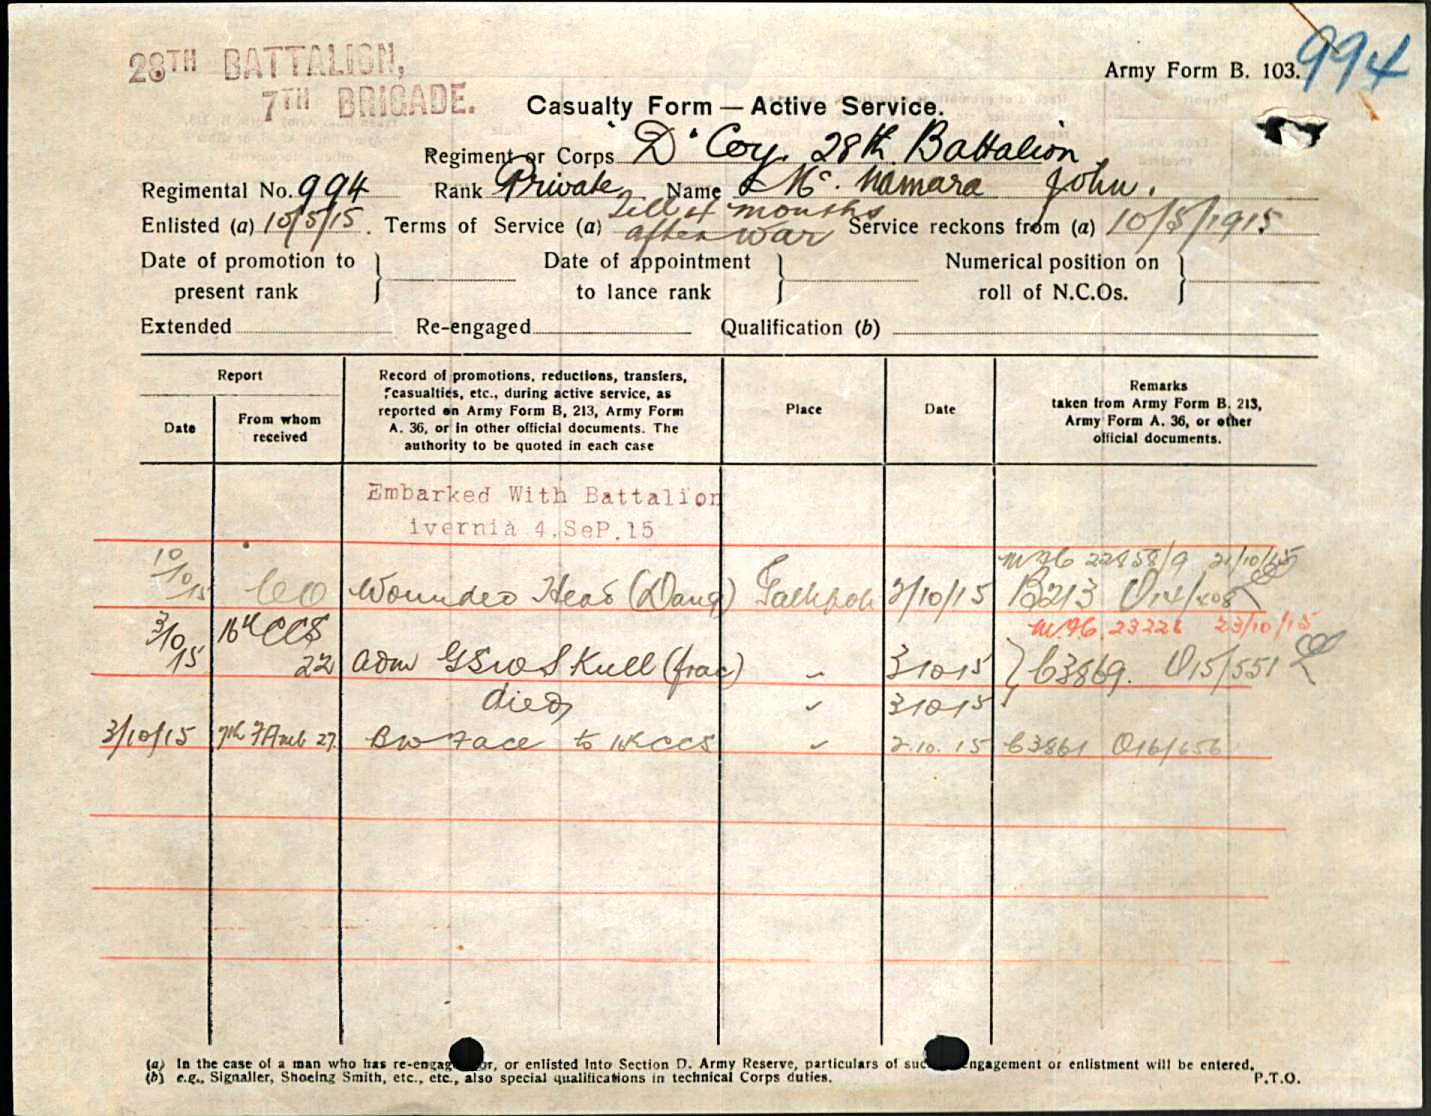 28TH BATTALION,
7TH BRIGADE.
Army Form B. 103.
994
Casualty Form — Active Service.
Regiment or Corps "D" Coy. 28th Battalion
Regimental No. 994 Rank Private Name McNamara John.
Enlisted (a) 10/5/15. Terms of Service (a) Till 4 months after war Service reckons from (a) 10/5/1915
Date of promotion to present rank } Date of appointment to lance rank } Numerical position on roll of N.C.Os. }
Extended Re-engaged Qualification (b)
Report
Date
From whom
received
Record of promotions, reductions, transfers,
casualties, etc., during active service, as
reported on Army Form B, 213, Army Form
A. 36, or in other official documents. The
authority to be quoted in each case
Place
Date
Remarks
taken from Army Form B. 213,
Army Form A. 36, or other
official documents.
Embarked With Battalion
ivernia 4.SeP.15
21/10/15
10/10/15 CO Wounded Head (Dang) Gallipoli 2/10/15 B213
23/10/15
3/10/15 16th CCS 22 adm GSW Skull (frac) " 3 10 15 } C3869. O15/551
died " 3 10 15
3/10/15 7th F Amb 27. BW Face to 16th CCS " 2.10.15 C3861 O16/656
(a) In the case of a man who has re-engag r, or enlisted into Section D. Army Reserve, particulars of suc ngagement or enlistment will be entered.
(b) e.g., Signaller, Shoeing Smith, etc., etc., also special qualifications in technical Corps duties.
P.T.O.